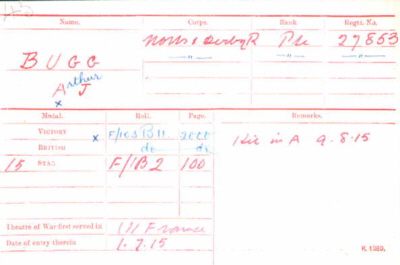 Name. Corps. Rank. Regtl. No.
BUGG Notts & Derby R Pte 27853
Arthur J " "
x
Medal. Roll. Page. Remarks.
VICTORY x F/103 B11 2020
BRITISH do do
15 STAR F/1B2 100
K in A 9-8-15
Theatre of War first served in (1) France
Date of entry therein 1.7.15
K. 1380.